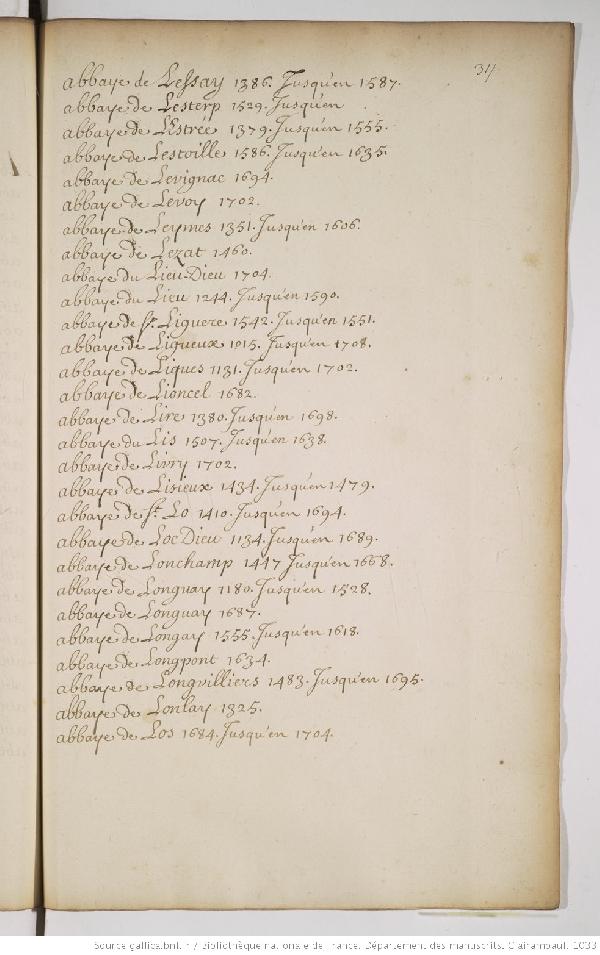 34
abbaye de Lessay 1386. Jusqu'en 1587.
abbaye de Lesterp 1529. Jusqu'en .
abbaye de L'Estrée 1379. Jusqu'en 1555.
abbaye de Lestoille 1586. Jusqu'en 1635.
abbaye de Levignac 1694.
abbaye de Levoy 1702.
abbaye de Leymes 1351. Jusqu'en 1606.
abbaye de Lezat 1460.
abbaye du Lieu-Dieu 1704.
abbaye du Lieu 1244. Jusqu'en 1590.
abbaye de St. Liguere 1542. Jusqu'en 1551.
abbaye de Ligueux 1115. Jusqu'en 1708.
abbaye de Liques 1131. Jusqu'en 1702.
abbaye de Lioncel 1682.
abbaye de Lire 1380. Jusqu'en 1698.
abbaye du Lis 1507. Jusqu'en 1638.
abbaye de Livry 1702.
abbaye de Lisieux 1434. Jusqu'en 1479.
abbaye de St. Lo 1410. Jusqu'en 1694.
abbaye de Loc Dieu 1134. Jusqu'en 1689.
abbaye de Lonchamp 1447 Jusqu'en 1668.
abbaye de Longuay 1180. Jusqu'en 1528.
abbaye de Longuay 1687.
abbaye de Longay 1555. Jusqu'en 1618.
abbaye de Longpont 1634.
abbaye de Longvilliers 1483. Jusqu'en 1695.
abbaye de Lonlay 1325.
abbaye de Los 1684. Jusqu'en 1704.
Source gallica.bnf.fr / Bibliothèque nationale de France. Département des manuscrits. Clairambault 1033